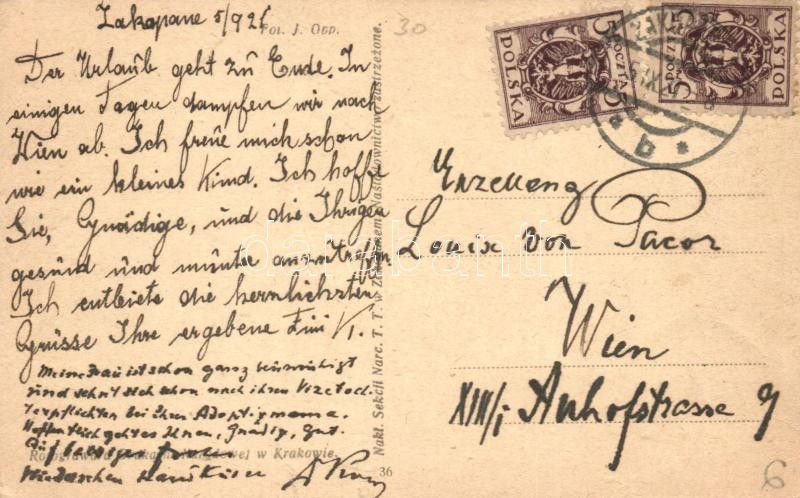 Zakopane 5/9 21
Fot. J. Opp.
30
Der Urlaub geht zu Ende. In
einigen Tagen dampfen wir nach
Wien ab. Ich freue mich schon
wie ein kleines Kind. Ich hoffe
Sie, Gnädige, und die Ihrigen
gesund und munter anzutreffen.
Ich entbiete die herrlichsten
Grüsse Ihre ergebene
Meine Frau ist schon ganz beunruhigt
und sehnt sich schon nach ihren
pflichten bei ihrer Adoptivmama.
Hoffentlich geht es Ihnen, Gnädig, gut.
Wiedersehen Handküsse
w Krakowie.
36
Nakł. Sekcji Narc. T. T. w Zakopanem. Naśladownictwo zastrzeżone.
5 POCZTA 5
POLSKA
5 POCZTA 5
POLSKA
* b *
Louix von Pacor
Wien
XIII/1 Anhofstrasse 9
6
darabanth